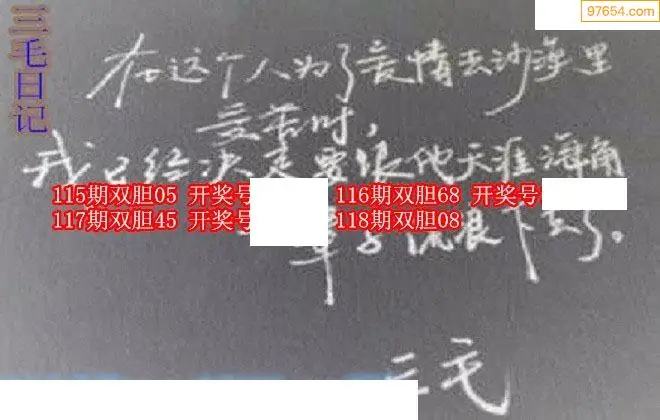 97654.com
三毛日记
在这个人为了爱情去沙漠里
受苦时,
我已经决定要跟他天涯海角
115期双胆05 开奖号
116期双胆68 开奖号
117期双胆45 开奖号
118期双胆08
辈子流浪下去了。
三毛